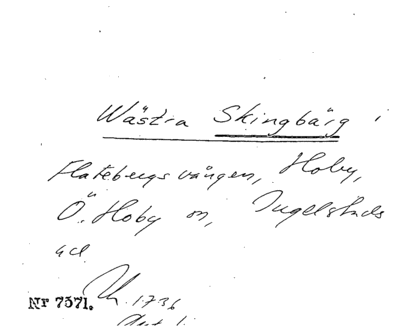 Wästra Skingbärg i
Flatebergsvången, Hoby,
Ö. Hoby sn, Ingelstads
hd.
Nr 7571. 1736